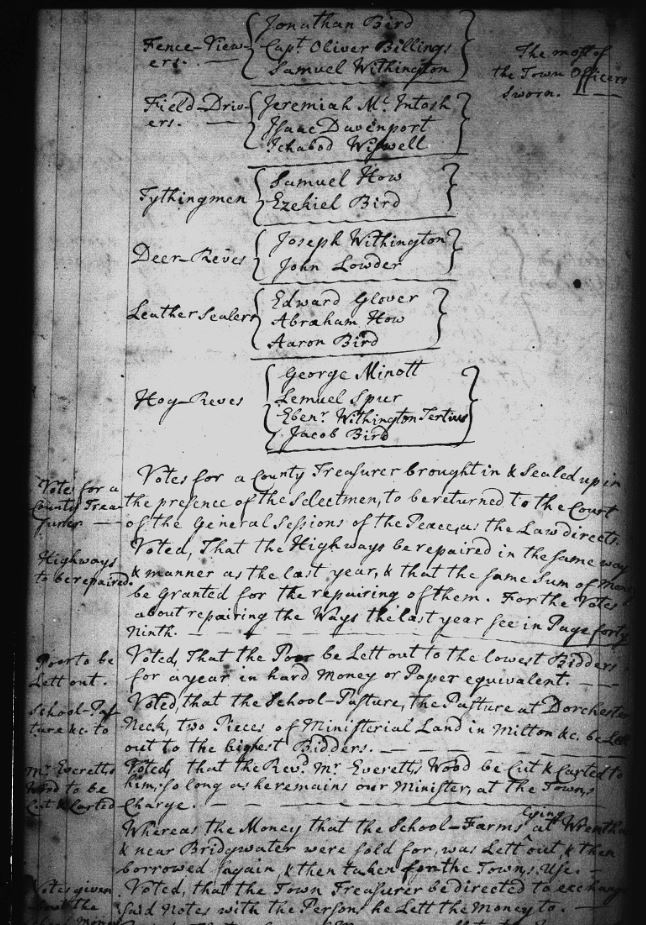 Fence-View-
ers.
Jonathan Bird
Capt. Oliver Billings
Samuel Withington
The most of
the Town Officers
Sworn.
Field-Driv-
ers.
Jeremiah Mc.Intosh
Isaac Davenport
Ichabod Wiswell
Tythingmen
Samuel How
Ezekiel Bird
Deer-Reves
Joseph Withington
John Lowder
Leather Sealers
Edward Glover
Abraham How
Aaron Bird
Hog-Reves
George Minott
Lemuel Spur
Ebenr. Withington Tertius
Jacob Bird
Votes for a
County Trea-
surer
Votes for a County Treasurer brought in & Sealed up in
the presence of the Selectmen, to be returned to the Court
of the General Sessions of the Peace, as the Law directs.
Highways
to be repaired.
Voted, That the Highways be repaired in the same way
& manner as the last year, & that the same Sum of Money
be granted for the repairing of them. For the Votes
about repairing the Ways the last year see in Page forty
Ninth.
Poor to be
Lett out.
Voted, That the Poor be Lett out to the lowest Bidders
for a year in hard Money or Paper equivalent.
School-Pas-
ture &c. to
Voted, that the School-Pasture, the Pasture at Dorchester
Neck, two Pieces of Ministerial Land in Milton &c. be Lett
out to the highest Bidders.
Mr. Everett's
Wood to be
Cut & Carted
Voted, that the Revd. Mr. Everett's Wood be Cut & Carted to
him, so long as he remains our Minister, at the Town's
Charge.
Whereas the Money that the School-Farms lying at Wrentham
& near Bridgwater were sold for, was Lett out, & then
borrowed again, & then taken for the Town's Use.
Notes given
Voted, that the Town Treasurer be directed to exchange
said Notes with the Persons he Lett the Money to.